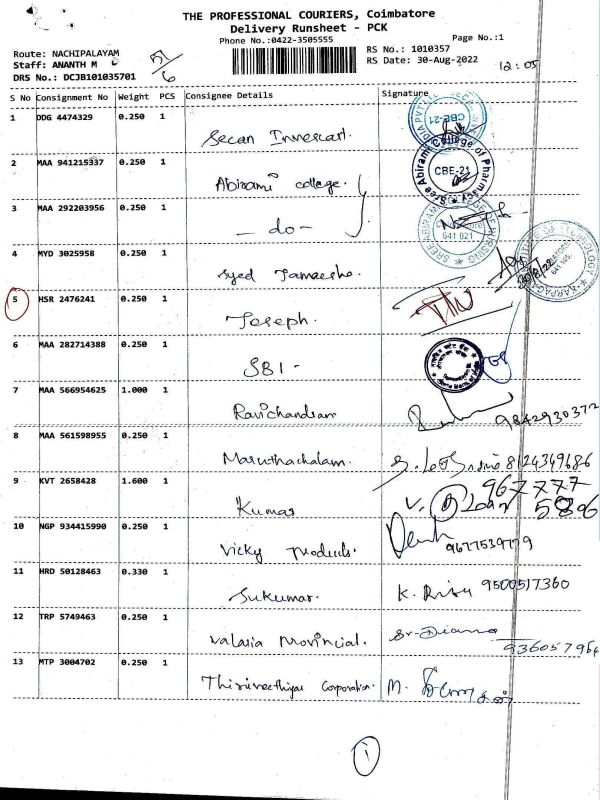 THE PROFESSIONAL COURIERS, Coimbatore
Delivery Runsheet - PCK
Phone No.:0422-3505555
Page No.:1
Route: NACHIPALAYAM
RS No.: 1010357
Staff: ANANTH M
RS Date: 30-Aug-2022
12:05
DRS No.: DCJB101035701
S No Consignment No Weight PCS Consignee Details Signature
1 DDG 4474329 0.250 1
CBE-21
2 MAA 941215337 0.250 1 Abirami college.
Sree Abirami College of Pharmacy CBE-21
3 MAA 292203956 0.250 1 - do -
641 021
4 MYD 3025958 0.250 1 Syed
30/8/22
5 HSR 2476241 0.250 1 Joseph.
6 MAA 282714388 0.250 1 SBI -
7 MAA 566954625 1.000 1 Ravichandran 9842930372
8 MAA 561598955 0.250 1 Maruthachalam. 8124349686
9 KVT 2658428 1.600 1 Kumar
967777
10 NGP 934415990 0.250 1 Vicky Products. 9677539779
11 HRD 50128463 0.330 1 Sukumar. K. 9500517360
12 TRP 5749463 0.250 1 Valaria Provincial. Sr. Diana
936057964
13 MTP 3004702 0.250 1 Corporation. M.
1